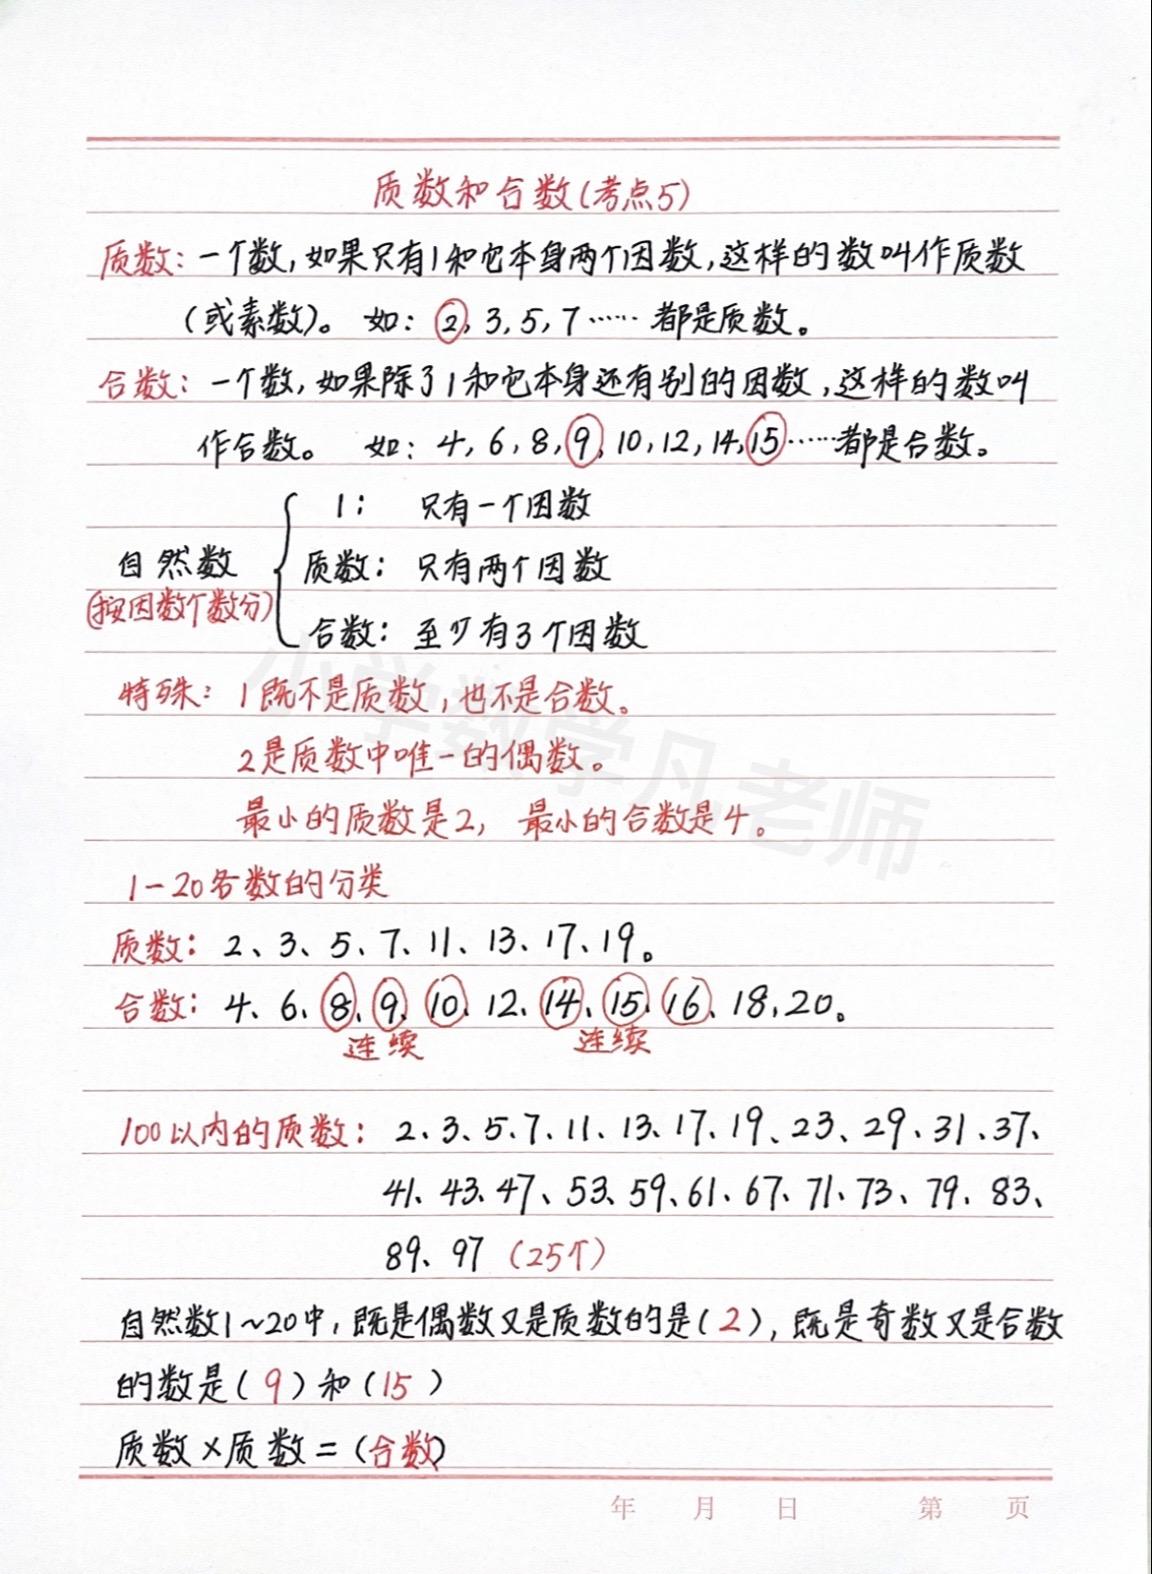 质数和合数(考点5)
质数：一个数，如果只有1和它本身两个因数，这样的数叫作质数
（或素数）。 如：2，3，5，7……都是质数。
合数：一个数，如果除了1和它本身还有别的因数，这样的数叫
作合数。 如：4，6，8，9，10，12，14，15……都是合数。
1： 只有一个因数
自然数 质数： 只有两个因数
(按因数个数分)
合数：至少有3个因数
特殊：1既不是质数，也不是合数。
2是质数中唯一的偶数。
最小的质数是2， 最小的合数是4。
1－20各数的分类
质数：2、3、5、7、11、13、17、19。
合数：4、6、8、9、10、12、14、15、16、18、20。
连续 连续
100以内的质数：2、3、5、7、11、13、17、19、23、29、31、37、
41、43、47、53、59、61、67、71、73、79、83、
89、97（25个）
自然数1~20中，既是偶数又是质数的是(2)，既是奇数又是合数
的数是(9)和(15)
质数×质数＝(合数)
年 月 日 第 页
小学数学凡老师